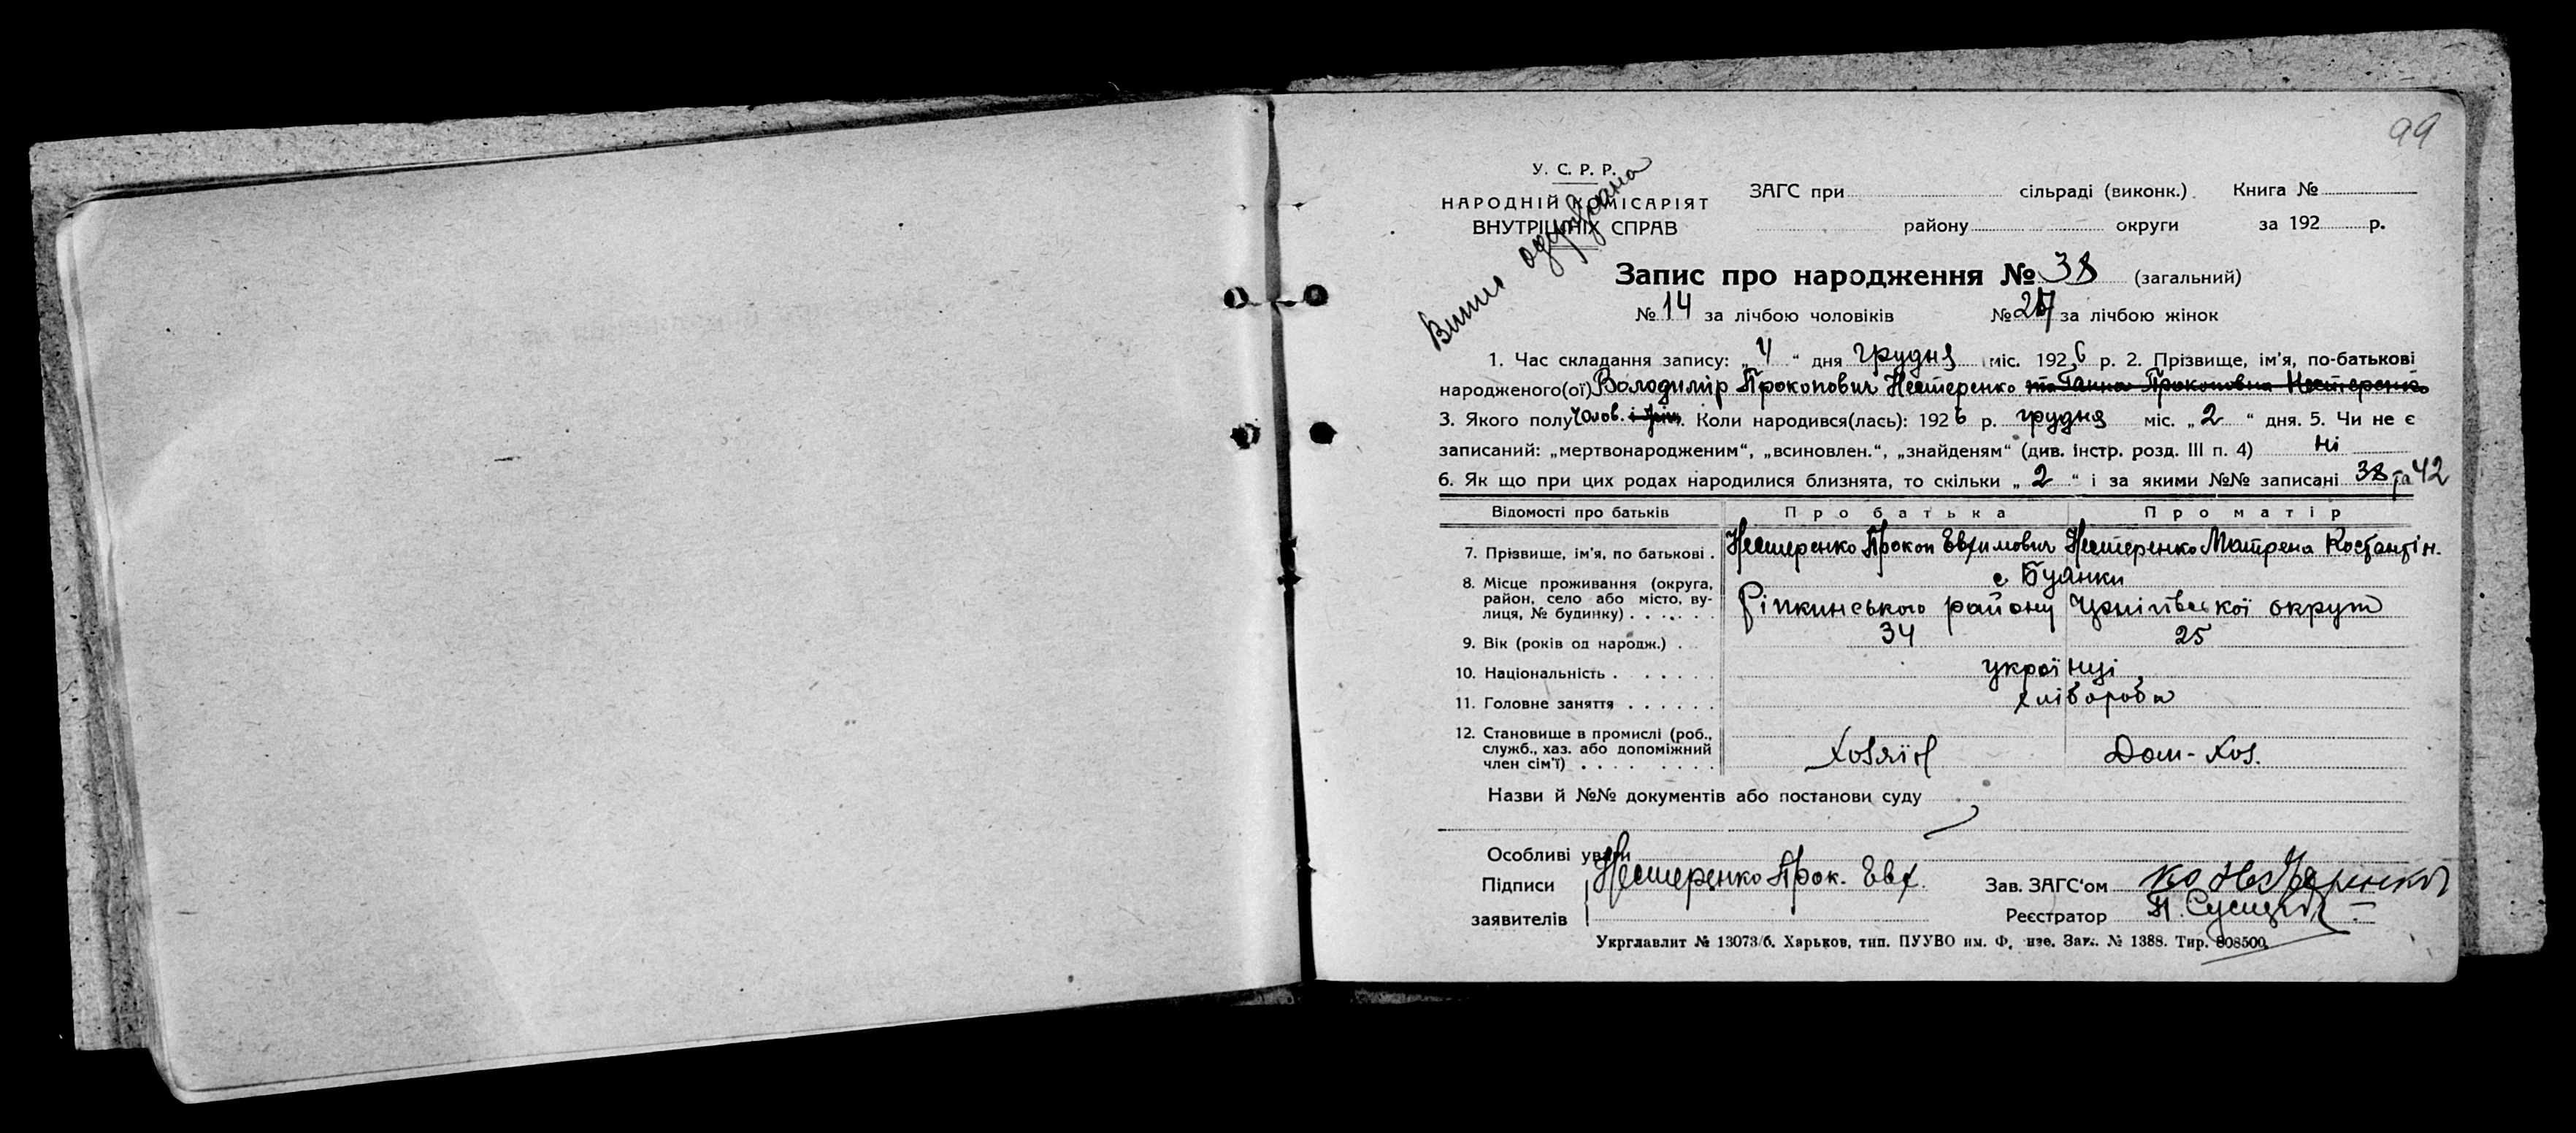 99
У. С. Р. Р.
НАРОДНІЙ КОМІСАРІЯТ
ВНУТРІШНІХ СПРАВ
Випис одержана
ЗАГС при сільраді (виконк.) Книга №
району округи за 192 р.
Запис про народження № 38 (загальний)
№ 14 за лічбою чоловіків № 27 за лічбою жінок
1. Час складання запису: „ 4 “ дня грудня міс. 1926 р. 2. Прізвище, ім'я, по-батькові
народженого(ої) Володимір Прокопович Нестеренко та Ганна Прокоповна Нестеренко
3. Якого полу Чолов. і жін. Коли народився(лась): 1926 р. грудня міс. „ 2 “ дня. 5. Чи не є
записаний: „мертвонародженим“, „всиновлен.“, „знайденям“ (див. інстр. розд. III п. 4) ні
6. Як що при цих родах народилися близнята, то скільки „ 2 “ і за якими №№ записані 38 та 42
Відомості про батьків Про батька Про матір
7. Прізвище, ім'я, по батькові . Нестеренко Прокоп Евхимович Нестеренко Матрена Костантін.
8. Місце проживання (округа, с. Буянки
район, село або місто, ву-
лиця, № будинку) . . . . . . Ріпкинського району Чернігівської округи
9. Вік (років од народж.) . 34 25
10. Національність . . . . . . українці
11. Головне заняття . . . . . . хлібороби
12. Становище в промислі (роб.,
служб., хаз. або допоміжний
член сім'ї) . . . . . . . . . Хозяїн Дом-Хоз.
Назви й №№ документів або постанови суду
Особливі уваги
Підписи Нестеренко Прок. Евх. Зав. ЗАГС'ом
заявителів Реєстратор
Укрглавлит № 13073/б. Харьков, тип. ПУУВО им. Ф. Зак. № 1388. Тир. 808500.